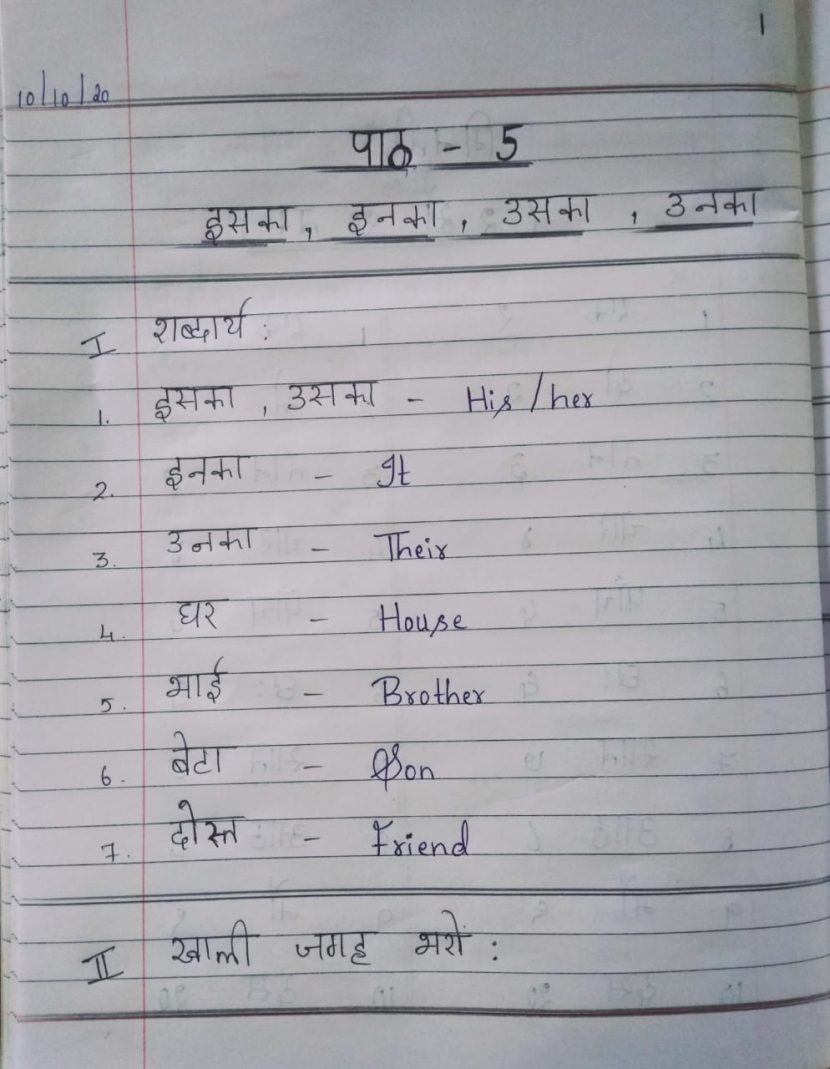 1
10/10/20
पाठ - 5
इसका, इनका, उसका, उनका
I शब्दार्थ :
1. इसका, उसका - His/her
2. इनका - It
3. उनका - Their
4. घर - House
5. भाई - Brother
6. बेटा - Son
7. दोस्त - Friend
II खाली जगह भरो :